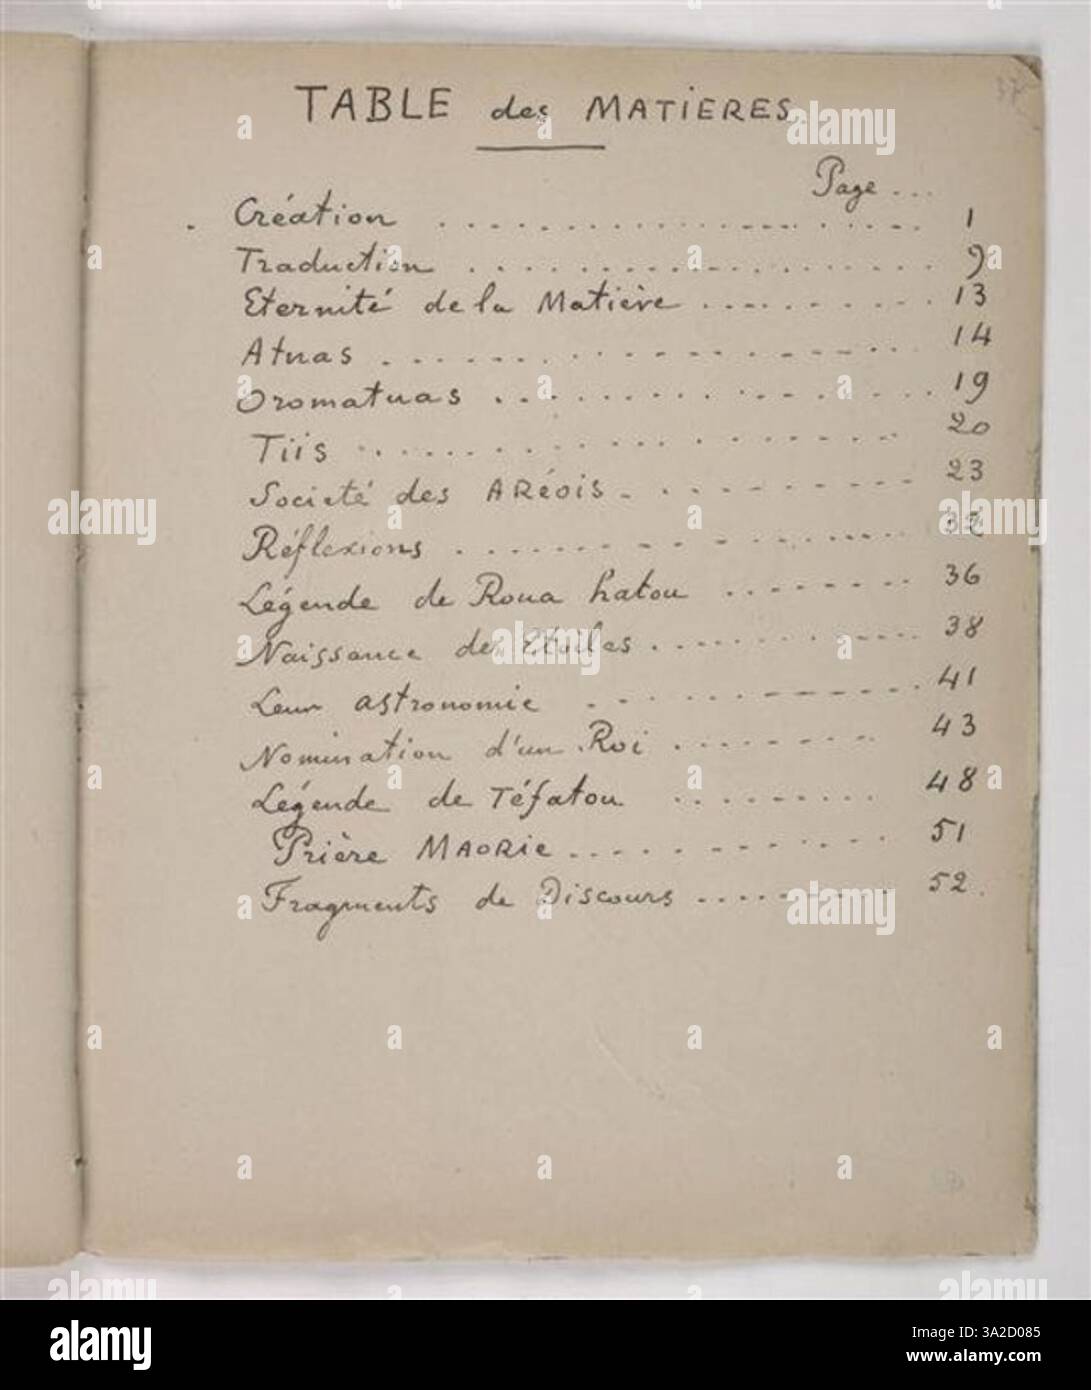 37
TABLE des MATIERES
Page ...
Création 1
Traduction 9
Eternité de la Matière 13
Atuas 14
Oromatuas 19
Tiis 20
Societé des ARéois 23
Réflexions 32
Légende de Roua hatou 36
Naissance des Etoiles 38
Leur astronomie 41
Nomination d'un Roi 43
Légende de Téfatou 48
Prière MAORie 51
Fragments de Discours 52.
alamy
Image ID: 3A2D085
www.alamy.com